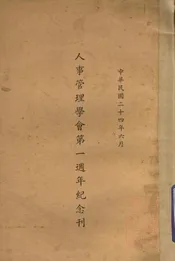 中華民國二十四年六月
人事管理學會第一週年紀念刊